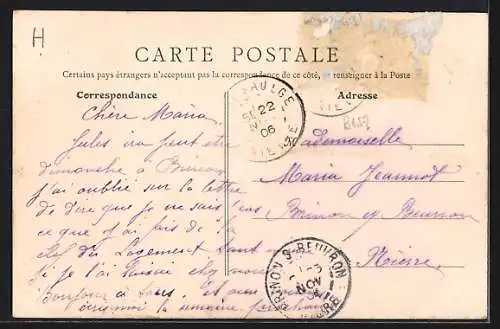 H
CARTE POSTALE
Certains pays étrangers n'acceptant pas la correspondance de ce côté, se renseigner à la Poste
Correspondance
Adresse
Chère Maria
Jules ira peut être
dimanche à Brinon
j'ai oublié sur la lettre
de dire que je ne sais pas
ce que j'ai fais de la
clef du Logement
si je l'ai laissée chez nous
bonjour à tous. Et
la semaine prochaine
22
06
VIENNE
Mademoiselle
Maria Jeannot
Brinon s/ Beuvron
Nièvre
BRINON-S-BEUVRON
NOV